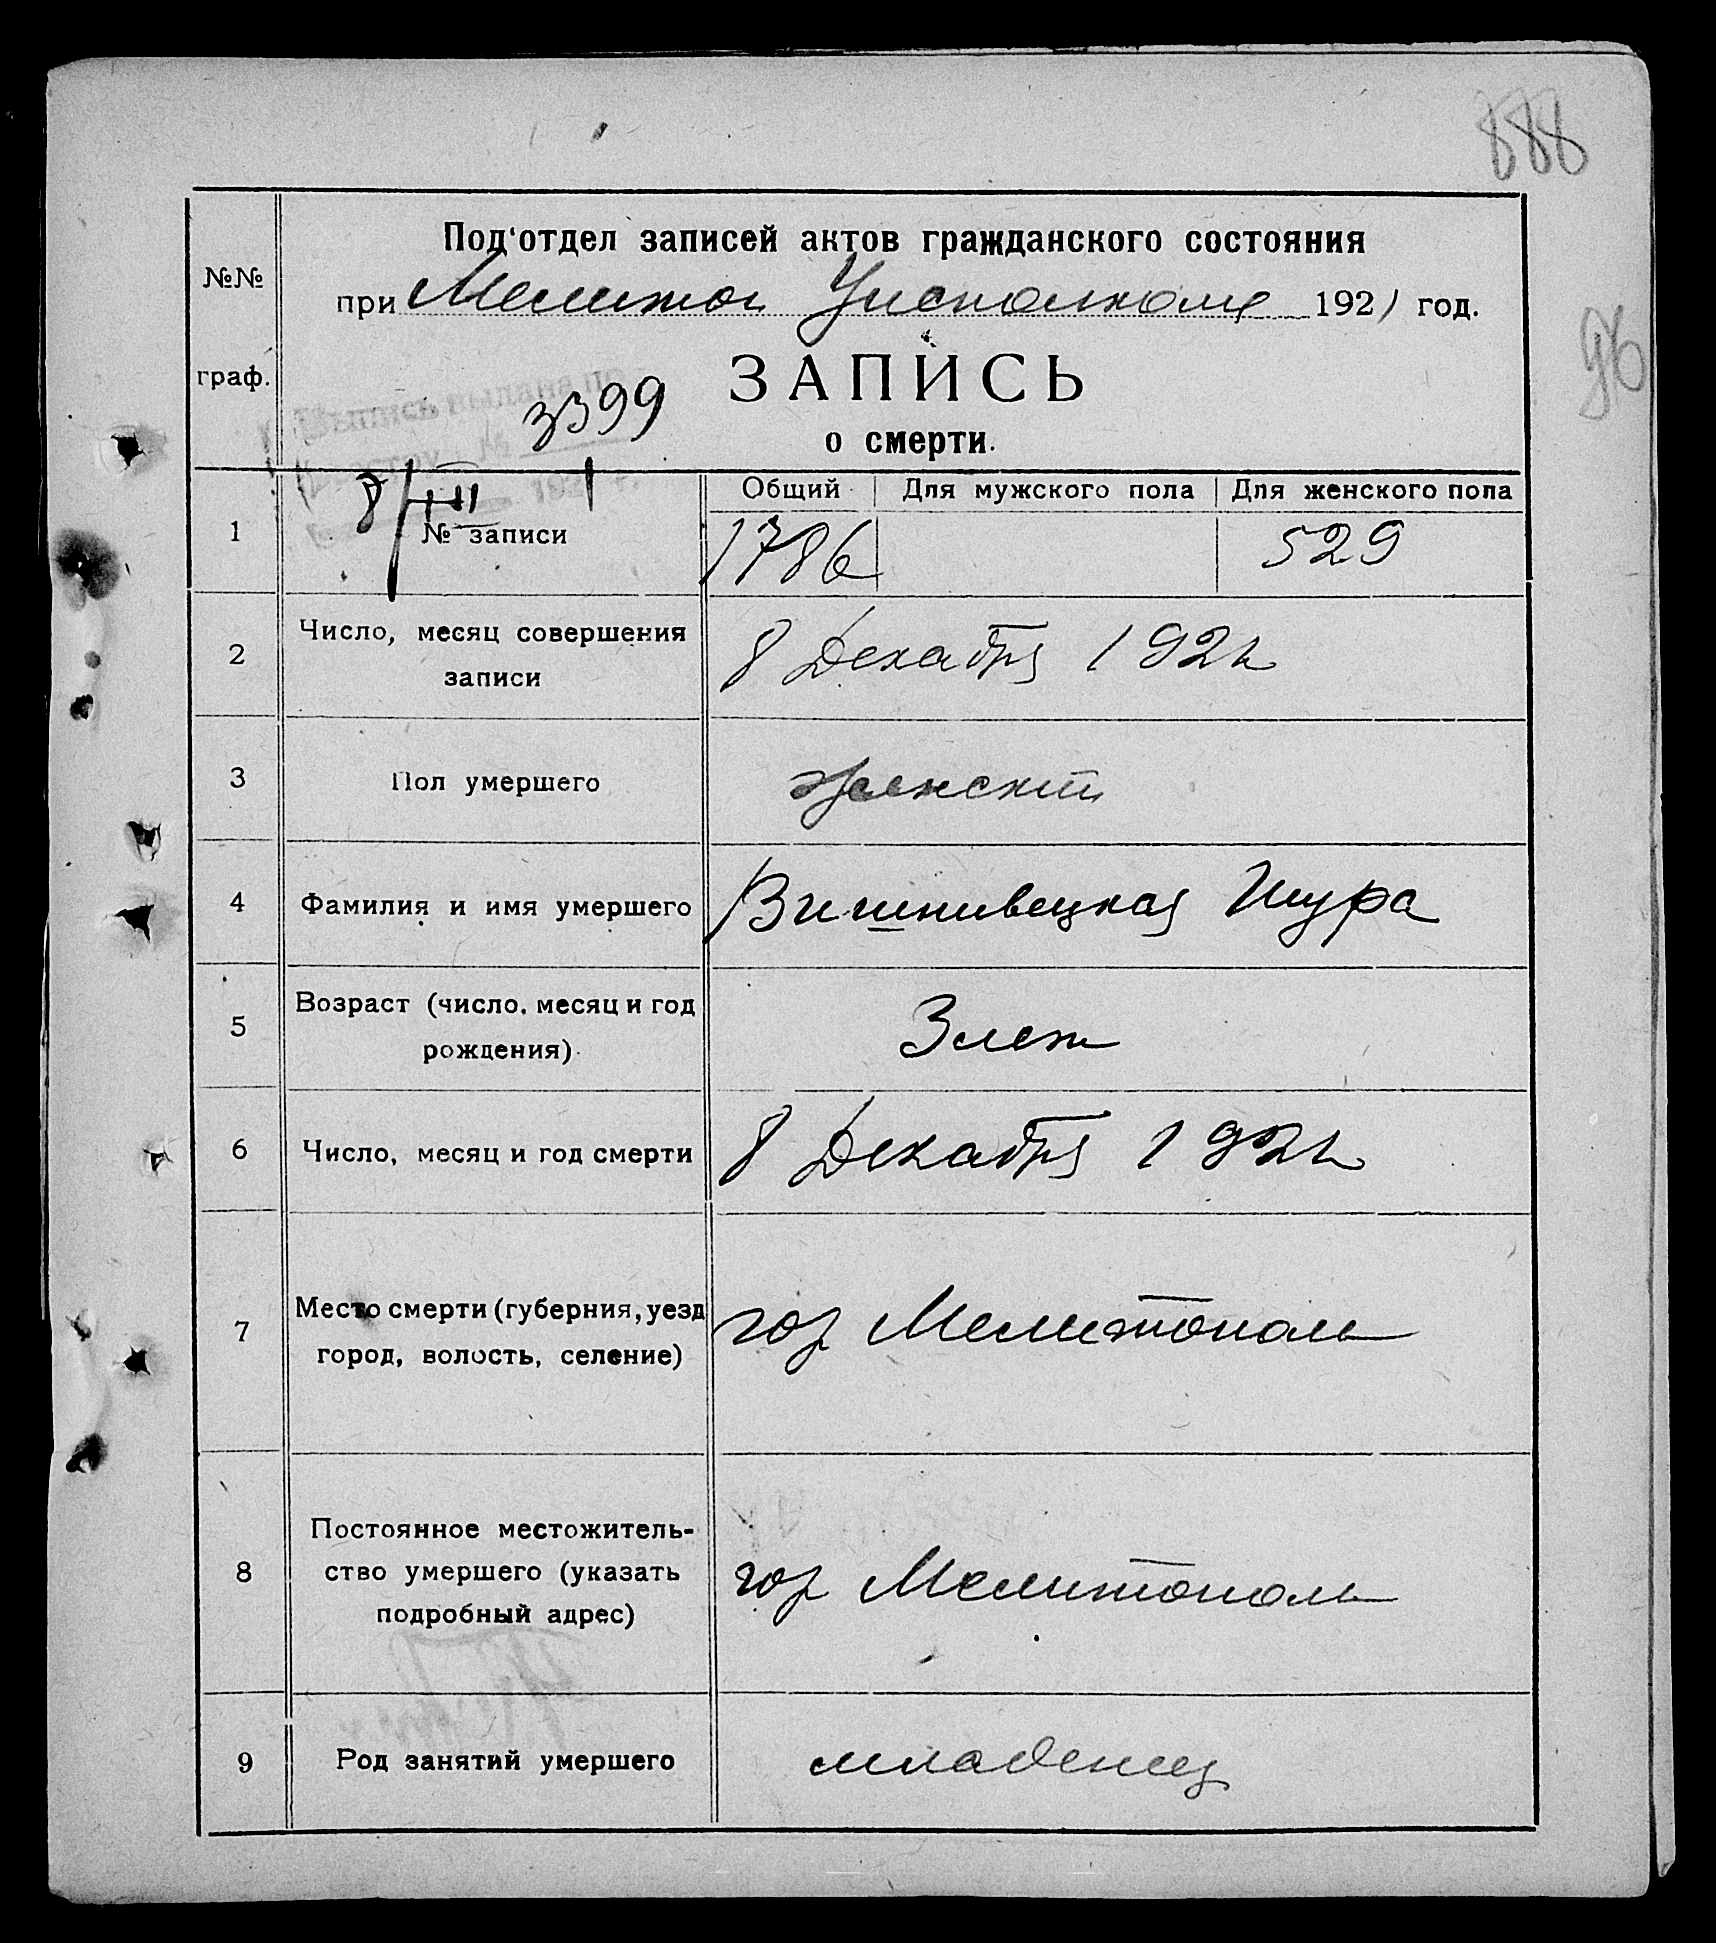 888
Под'отдел записей актов гражданского состояния
№№
при Мелитоп Уисполкоме 1921 год.
96
граф.
ЗАПИСЬ
Выпись выдана по
3399
о смерти.
8/III
1
№ записи
Общий Для мужского пола Для женского пола
1786 529
2
Число, месяц совершения
записи
8 Декабря 192
3
Пол умершего
женский
4
Фамилия и имя умершего
Вишнивецкая Шура
5
Возраст (число, месяц и год
рождения).
3 лет
6
Число, месяц и год смерти
8 Декабря 192
7
Место смерти (губерния, уезд
город, волость, селение)
гор Мелитополь
8
Постоянное местожитель-
ство умершего (указать
подробный адрес)
гор Мелитополь
9
Род занятий умершего
младенец